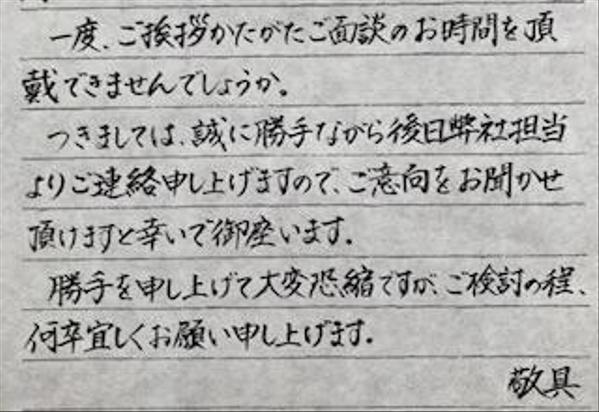 一度、ご挨拶かたがたご面談のお時間を頂
戴できませんでしょうか。
つきましては、誠に勝手ながら後日弊社担当
よりご連絡申し上げますので、ご意向をお聞かせ
頂けますと幸いで御座います。
勝手を申し上げて大変恐縮ですが、ご検討の程、
何卒宜しくお願い申し上げます。
敬具